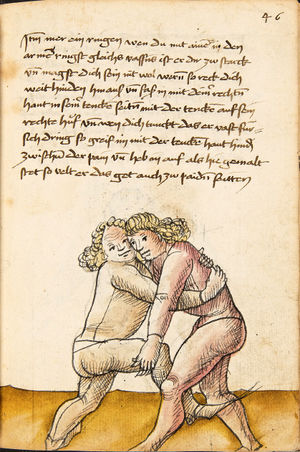 46
Itm mer ein ringen wen du mit aīm in den
armē ringst gleichs vassens ist er dir zw starck
vn̄ magst dich sein nit wol so reck dich
weit hinden hinaus vn̄ fas in mit deinr rechtn̄
hant in sein tencke seitn̄ mit der tencke auf sein
rechte hüf vn̄ wen dich tunckt das er vast für
sich dring so greif im mit der tencke hant hindn̄
zwischn̄ der pain vn̄ heb an auf als hie gemalt
stet so velt er das get auch zw paidn̄ seitten